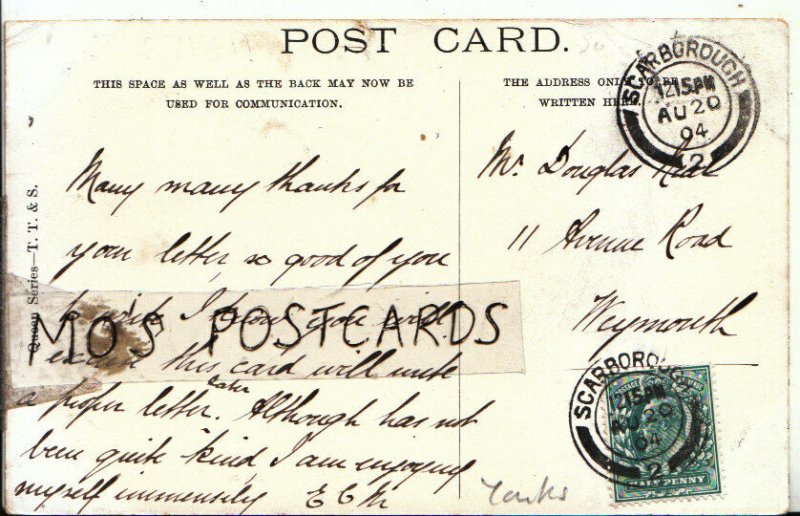 POST CARD.
THIS SPACE AS WELL AS THE BACK MAY NOW BE
USED FOR COMMUNICATION.
THE ADDRESS ONLY TO BE
WRITTEN HERE.
SCARBOROUGH
12.15PM
AU 20
04
2
Queen Series—T. T. & S.
Many many thanks for
your letter so good of you
to write I know you will
excuse this card will write
later
a proper letter. Although has not
been quite kind I am enjoying
myself immensely E C M
MO'S POSTCARDS
Mr. Douglas Neal
11 Avenue Road
Weymouth
SCARBOROUGH
12.15PM
AU 20
04
2
HALFPENNY
Yorks